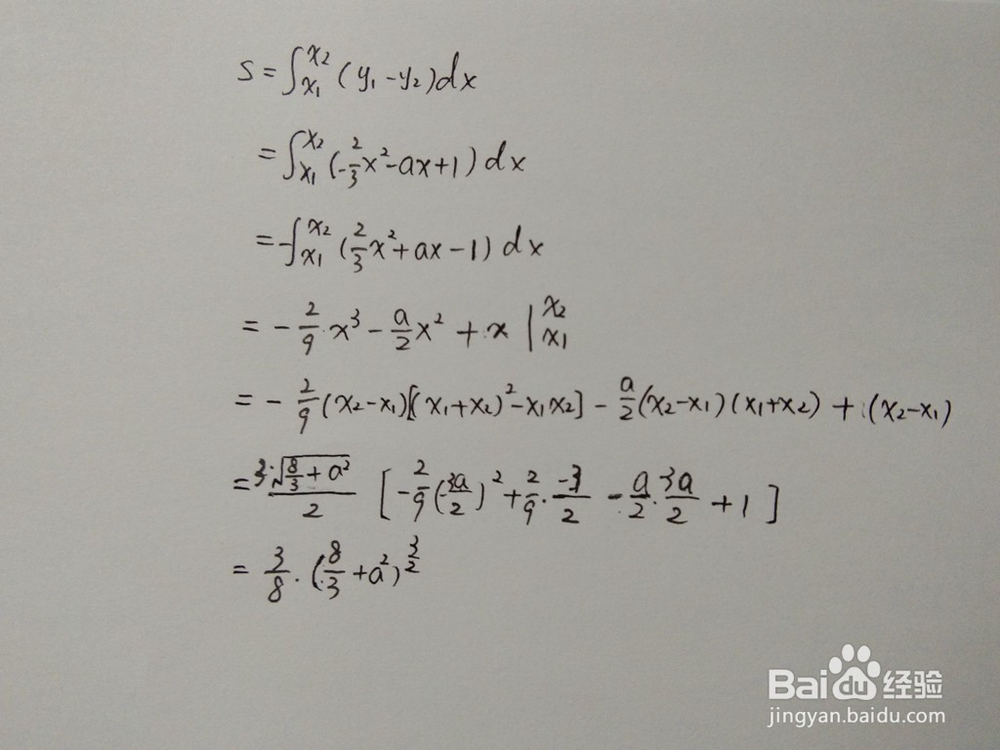 S = ∫_{x₁}^{x₂} (y₁ - y₂) dx
= ∫_{x₁}^{x₂} (-2/3 x² - ax + 1) dx
= -∫_{x₁}^{x₂} (2/3 x² + ax - 1) dx
= - 2/9 · x³ - a/2 x² + x |_{x₁}^{x₂}
= - 2/9 (x₂ - x₁)[(x₁ + x₂)² - x₁x₂] - a/2 (x₂ - x₁)(x₁ + x₂) + (x₂ - x₁)
= 3·√(8/3 + a²)/2 [ - 2/9 (-3a/2)² + 2/9 · -3/2 - a/2 · -3a/2 + 1 ]
= 3/8 · (8/3 + a²)^{3/2}
Baidu 经验
jingyan.baidu.com